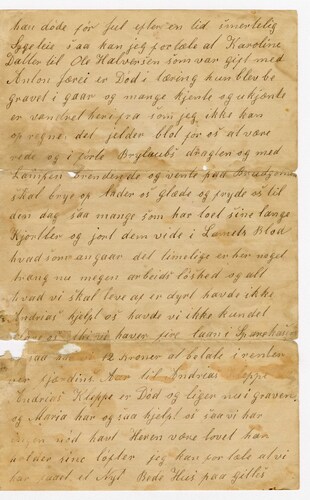 han døde før Jul efter en tid smertelig
Sygeleie saa kan jeg fortæle at Karoline
Datter til Ole Halvorsen som var gift med
Anton er Død i hun blev be
gravet i gaar og mange kjente og ukjente
er vandret herefra som jeg ikke kan
opregne det jelder blot for os at være
rede og i Bryllaubs dragten og med
Lampen brendende og vente paa Brudgommen
skal bryt op Lader os glæde og fryde os til
den dag saa mange som har toet sine lange
Kjortler og jort dem vide i Lamets Blod
hvad som angaar det timelige er her noget
trang nu megen arbeids løshed og alt
hvad vi skal leve af er dyrt havde ikke
Andrias hjelpt os havde vi ikke kundet
vi haver fire laan i Sparekas
saa 12 kroner at betale i renter
Aar til Andrias Kleppe
Andrias Kleppe er Død og liger nu i graven
og Maria har og saa hjelpt os saa vi har
ingen nød havt Heren være lovet han
sine løfter jeg kan fortæle at vi
har et Nyt Bede Hus paa